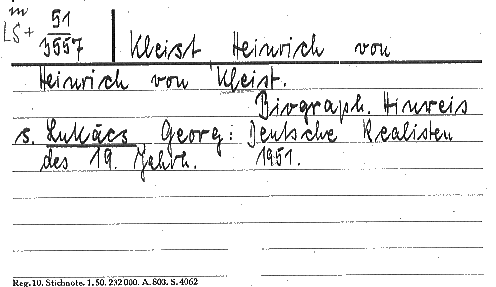 in
LS+ 51
3557
Kleist Heinrich von
Heinrich von Kleist.
Biograph. Hinweis
s. Lukács Georg: Deutsche Realisten
des 19. Jahrh. 1951.
Reg. 10. Stichnote. 1. 50. 232 000. A. 803. S. 4062